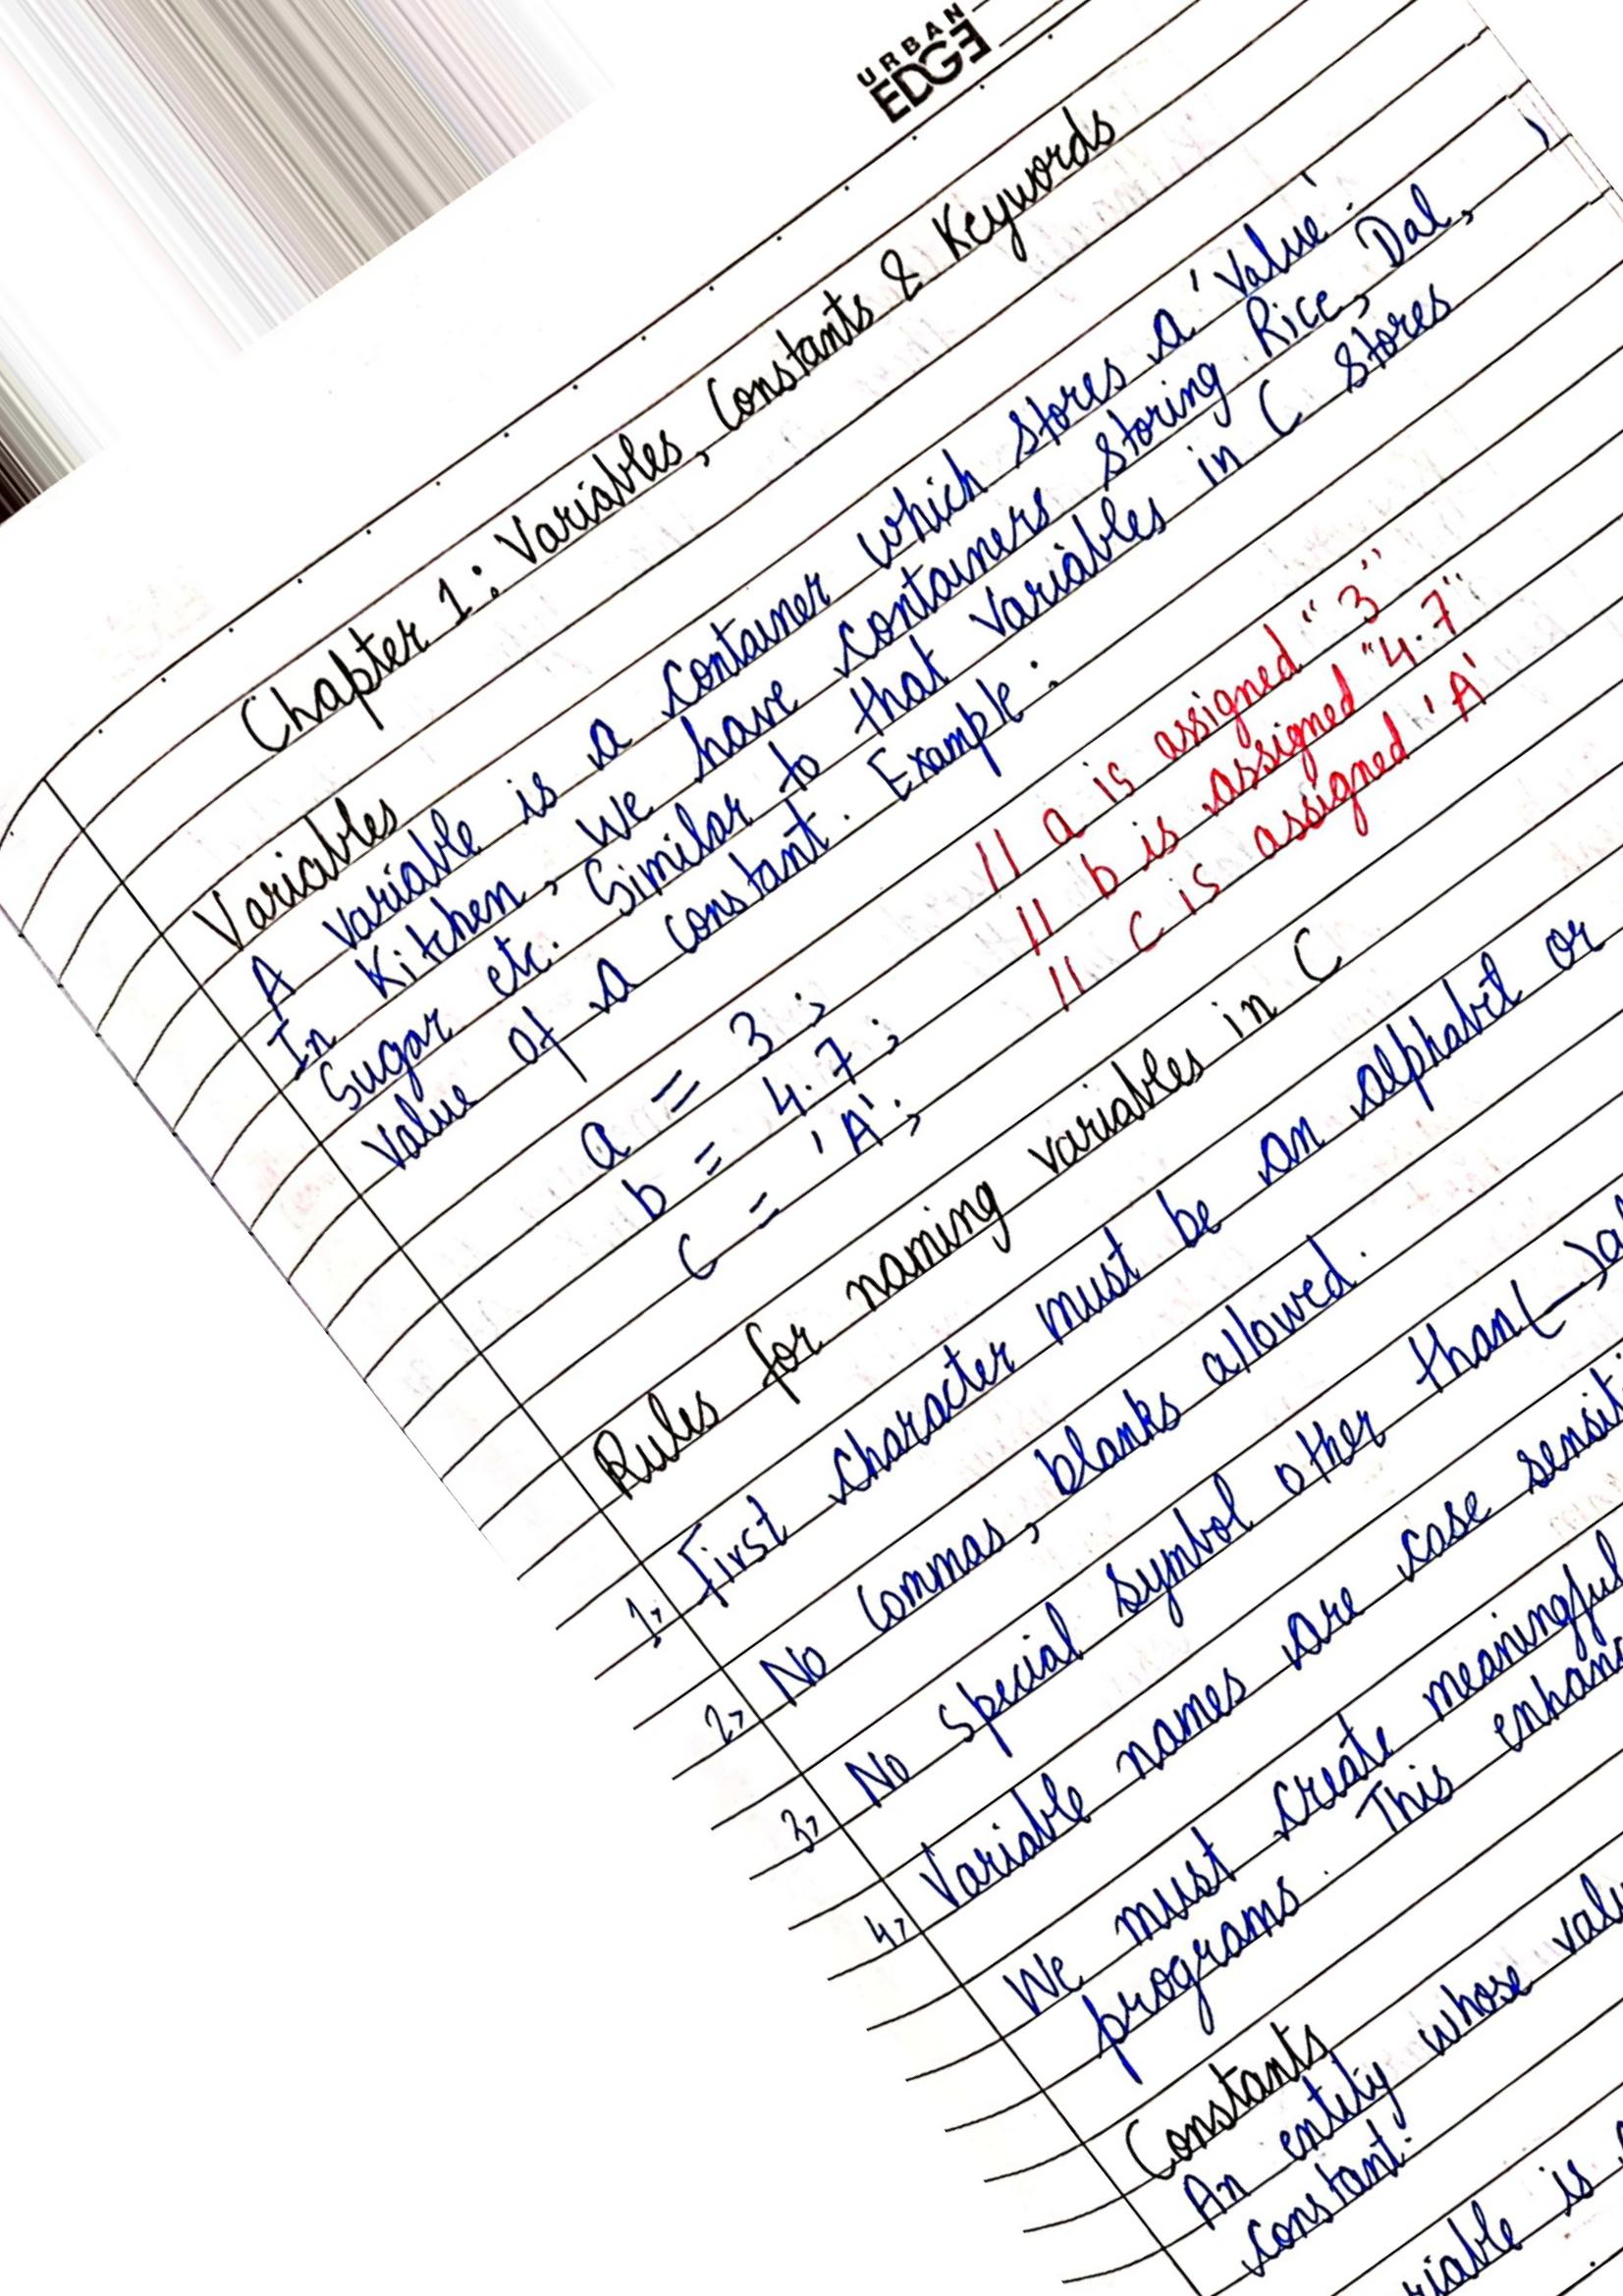 URBAN
EDGE
Chapter 1: Variables, Constants & Keywords
Variables
A variable is a container which stores a 'value'.
In Kitchen, We have containers storing Rice, Dal,
Sugar etc. Similar to that Variables in C Stores
Value of a constant. Example:
a = 3; // a is assigned "3"
b = 4.7; // b is assigned "4.7"
c = 'A'; // C is assigned 'A'
Rules for naming variables in C
1, First character must be an alphabet or
2, No Commas, blanks allowed.
3, No special symbol other than (_)
4, Variable names are case
We must create meaningful
programs. This
Constants
An entity whose
constant.
is